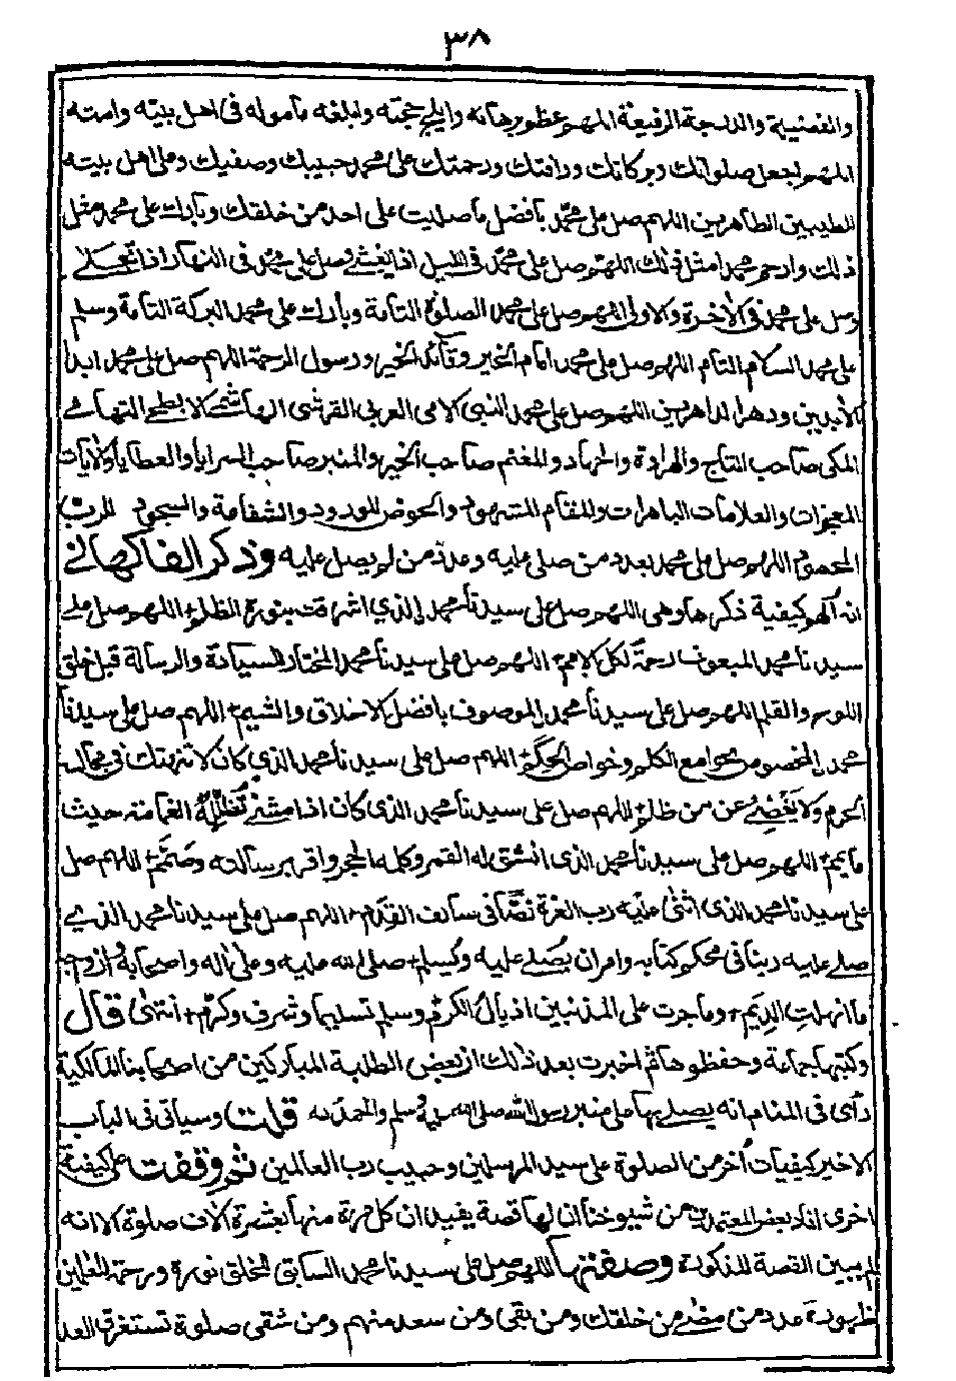 ٣٨
والفضيلة والدرجة الرفيعة اللهم عظم برهانه وابلج حجته وابلغه مأموله في اهل بيته وامته
اللهم اجعل صلواتك وبركاتك ورأفتك ورحمتك على محمد حبيبك وصفيك وعلى اهل بيته
الطيبين الطاهرين اللهم صل على محمد بافضل ما صليت على احد من خلقك وبارك على محمد مثل
ذلك وارحم محمدا مثل ذلك اللهم صل على محمد في الليل اذا يغشى وصل على محمد في النهار اذا تجلى
وصل على محمد في الاخرة والاولى اللهم صل على محمد الصلوة التامة وبارك على محمد البركة التامة وسلم
على محمد السلام التام اللهم صل على محمد امام الخير وقائد الخير ورسول الرحمة اللهم صل على محمد ابدا
الابدين ودهر الداهرين اللهم صل على محمد النبي الامي العربي القرشي الهاشمي الابطحي التهامي
المكي صاحب التاج والهراوة والجهاد والمغنم صاحب الخير والمنبر صاحب السرايا والعطايا والايات
المعجزات والعلامات الباهرات والمقام المشهود والحوض المورود والشفاعة والسجود للرب
المحمود اللهم صل على محمد بعدد من صلى عليه وعدد من لم يصل عليه وذكر الفاكهاني
انه الهم كيفية ذكرها وهي اللهم صل على سيدنا محمد الذي اشرقت بنوره الظلم اللهم صل على
سيدنا محمد المبعوث رحمة لكل الامم اللهم صل على سيدنا محمد المختار للسيادة والرسالة قبل خلق
اللوح والقلم اللهم صل على سيدنا محمد الموصوف بافضل الاخلاق والشيم اللهم صل على سيدنا
محمد المخصوص بجوامع الكلم وخواص الحكم اللهم صل على سيدنا محمد الذي كان لا تنتهك في مجالسه
الحرم ولا يغضي عن من ظلم اللهم صل على سيدنا محمد الذي كان اذا مشى تظلله الغمامة حيث
ما يمم اللهم صل على سيدنا محمد الذي انشق له القمر وكلمه الحجر واقر برسالته وصمم اللهم صل
على سيدنا محمد الذي اثنى عليه رب العزة نصا في سالف القدم اللهم صل على سيدنا محمد الذي
صلى عليه ربنا في محكم كتابه وامر ان يصلى عليه ويسلم صلى الله عليه وعلى اله واصحابه وازواجه
ما انهلت الديم وما جرت على المذنبين اذيال الكرم وسلم تسليما وشرف وكرم انتهى قال
وكتبها جماعة وحفظوها ثم اخبرت بعد ذلك ان بعض الطلبة المباركين من اصحابنا المالكية
رأى في المنام انه يصلي بها على منبر رسول الله صلى الله عليه وسلم والحمد لله قلت وسيأتي في الباب
الاخير كيفيات أخر من الصلوة على سيد المرسلين وحبيب رب العالمين ثم وقفت على كيفية
اخرى افاد بعض المعتمدين من شيوخنا ان لها قصة يفيد ان كل مرة منها بعشرة الاف صلوة الا انه
لم يبين القصة المذكورة وصفتها اللهم صل على سيدنا محمد السابق للخلق نوره ورحمة للعالمين
ظهوره عدد من مضى من خلقك ومن بقي ومن سعد منهم ومن شقي صلوة تستغرق العد